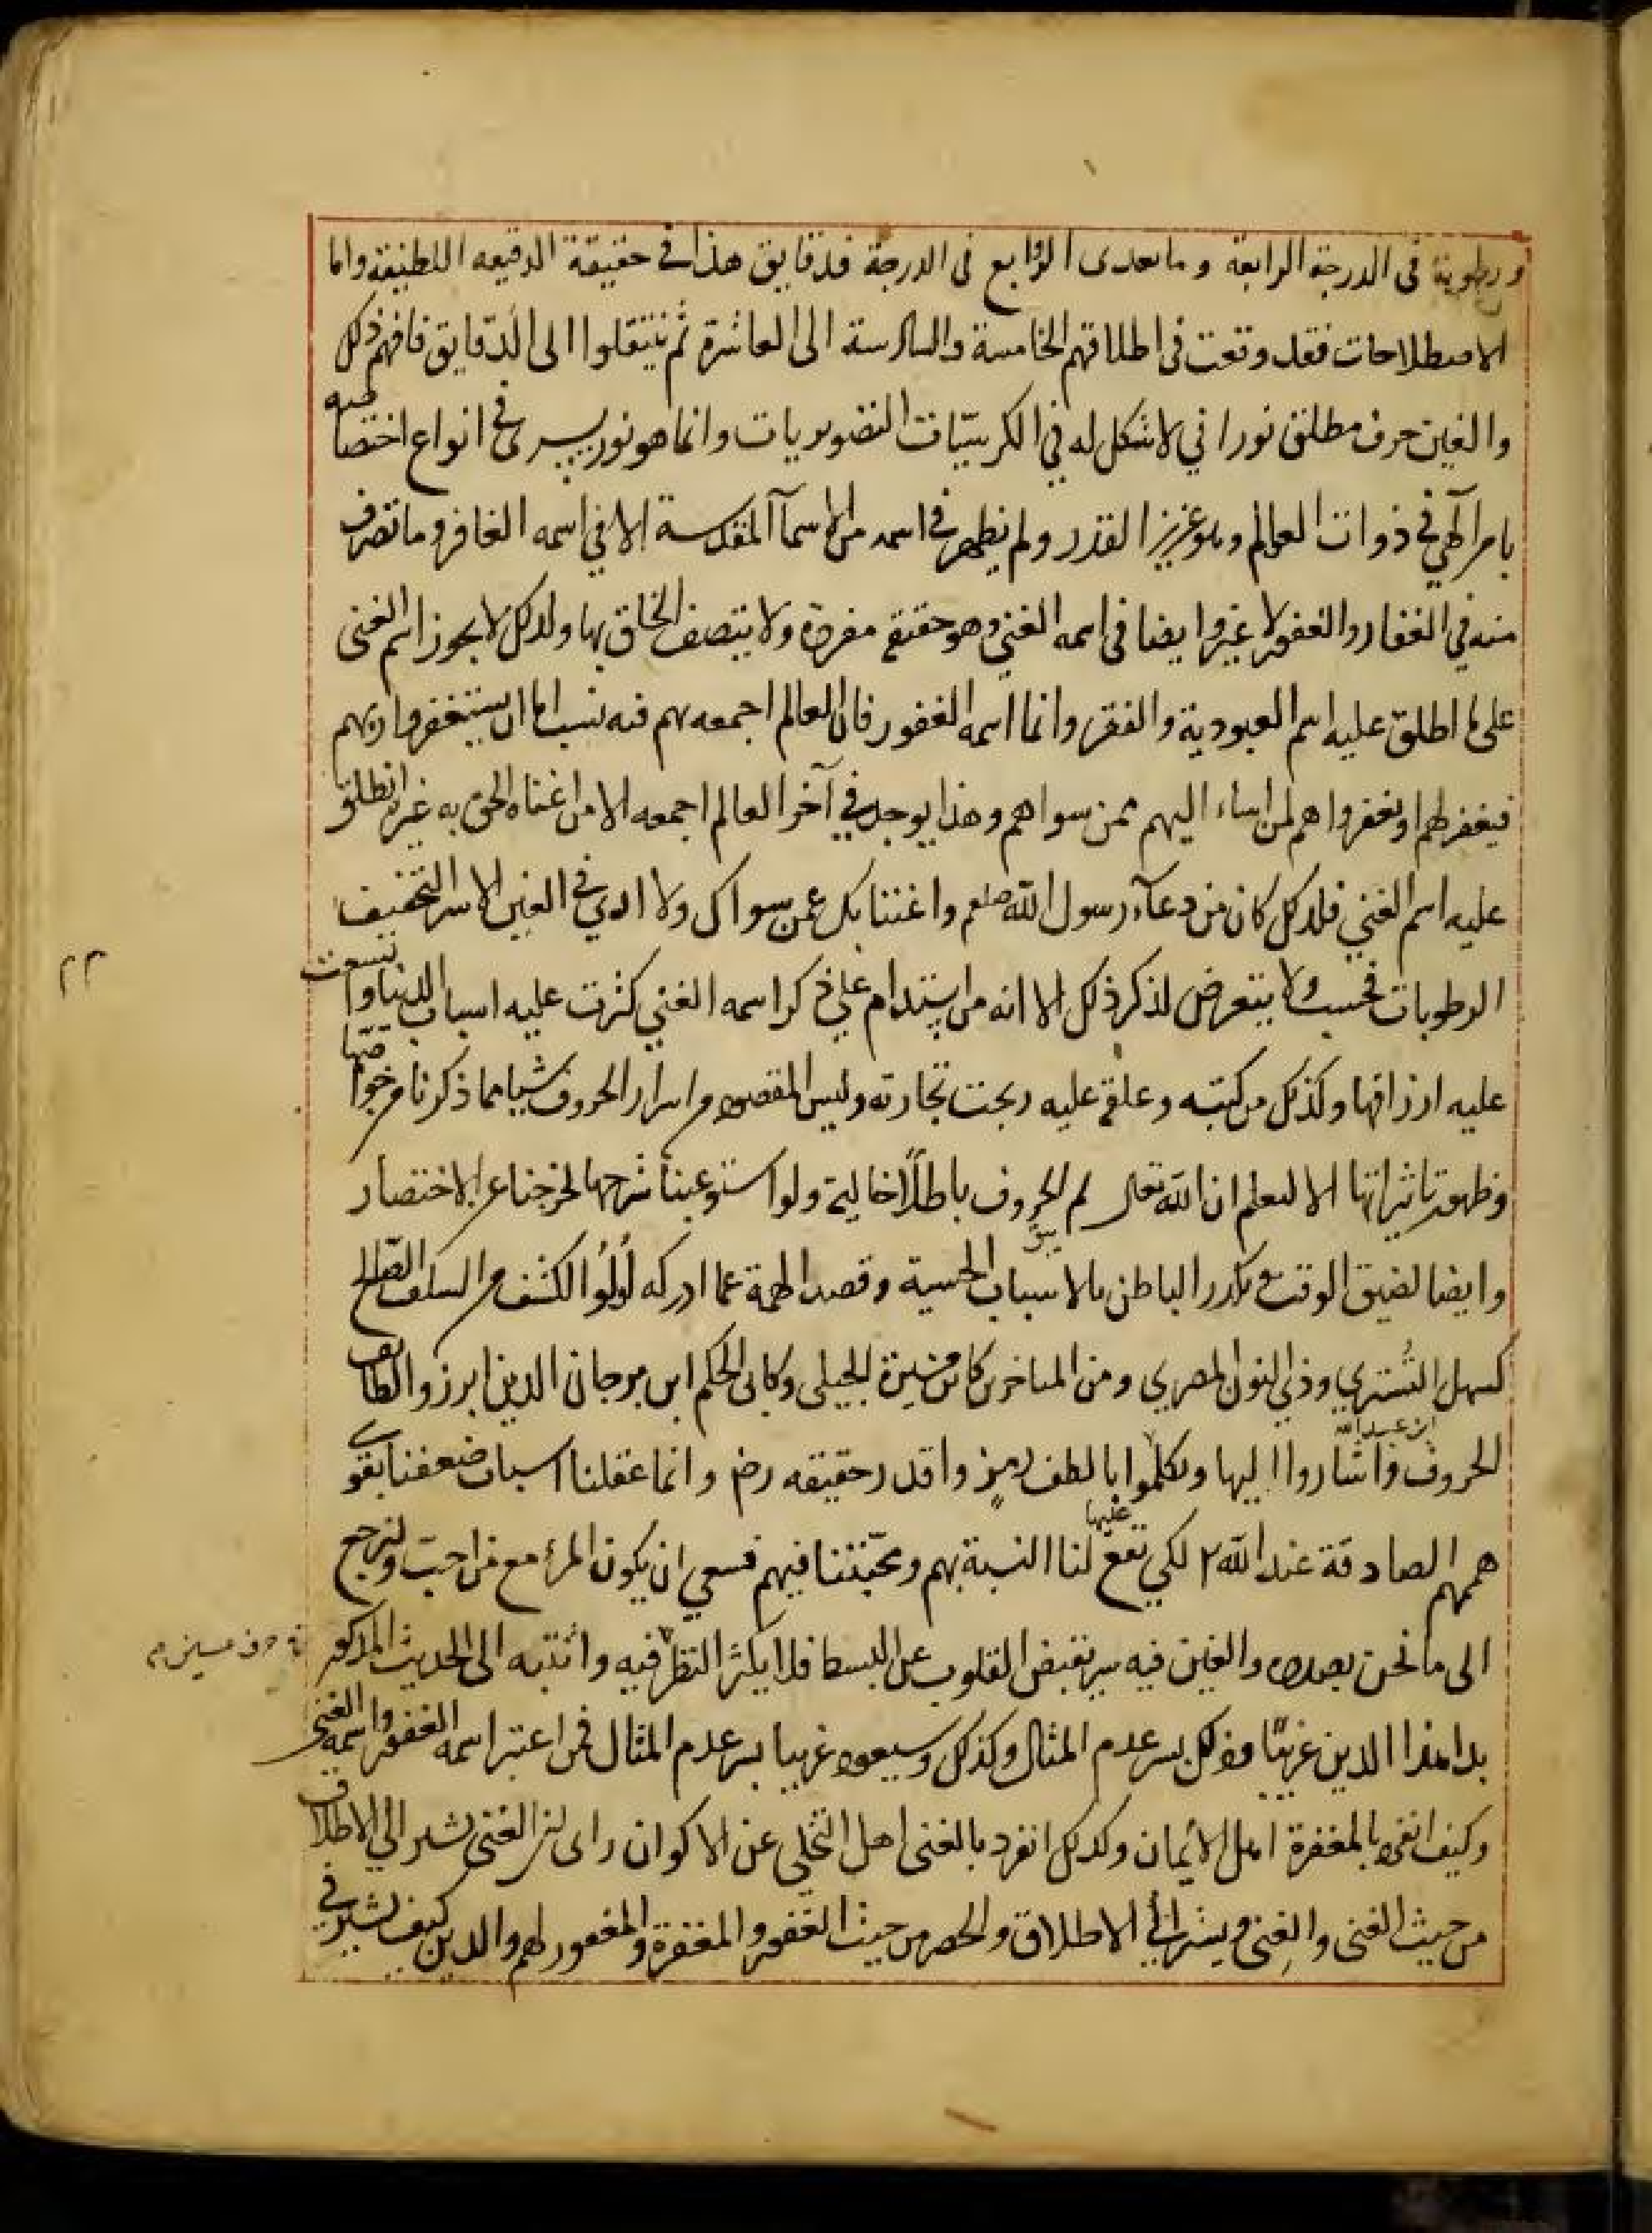 ورطوبة في الدرجة الرابعة وما تعدى الرابع في الدرجة فدقايق هذا في حقيقة الدقيعه اللطيفة واما
الاصطلاحات فقد وقعت في اطلاقهم الخامسة والسادسة الى العاشرة ثم ينتقلوا الى الدقايق فافهم ذلك
والغين حرف مطلق نوراني لا شكل له في الكرسيات التصويريات وانما هو نور يسرى في انواع اختصاصه
بامر الهي في ذوات العوالم وهو عزيز القدر ولم يظهر في اسمه من الاسمآ المقدسة الا في اسمه الغافر وما تصرف
منه في الغفار والغفور لا غير وايضا في اسمه الغني وهو حقيقة مفردة ولا يتصف الخلق بها ولذلك لا يجوز اسم الغنى
على ما اطلق عليه اسم العبودية والفقر وانما اسمه الغفور فان العالم اجمعه لهم فيه نسب اما ان يستغفروا ربهم
فيغفر لهم او يغفروا هم لمن اساء اليهم ممن سواهم وهذا يوجد في آخر العالم اجمعه الا من اغناه الحق به غيره انطلق
عليه اسم الغني فلذلك كان من دعآء رسول الله صلعم واغننا بك عمن سواك ولا الذي في الغين الا سر التخفيف
الرطوبات فحسب ولا يتعرض لذكر ذلك الا انه من استدام على ذكر اسمه الغني كثرت عليه اسباب الدنيا واتسعت
عليه ارزاقها وكذلك من كتبه وعلقه عليه ربحت تجارته وليس المقصود من اسرار الحروف شيا مما ذكرنا من خواصها
وظهور تاثيراتها الا لتعلم ان الله تعالى لم يبق الحروف باطلًا خالية ولو استوعبنا شرحها لخرجنا عن الاختصار
وايضا لضيق الوقت وتكدر الباطن بالاسباب الحسية وقصد الهمة عما ادركه أولوا الكشف من السلف الصالح
كسهل ابن عبد الله التُستري وذي النون المصري ومن المتاخرين كابن مسرة الجبلى وكابى الحكم ابن برجان الذين ابرزوا لطايف
الحروف واشاروا اليها وتكلموا بالطف رمز واقدر حقيقه رض وانما عقلنا اسباب ضعفنا بقوى
هممهم الصادقة عند الله لكي تقع عليها لنا النسبة بهم ومحبّتنا فيهم فسعي ان يكون المرء مع من احبّ ولنرجع
الى ما نحن بصدده والغين فيه سر نقبض القلوب عن البسط فلا يكثر النظر فيه وانتبه الى الحديث المذكور
بدا هذا الدين غريبًا وذلك بسر عدم المثال وكذلك وسيعود غريبا بسر عدم المثال فمن اعتبر اسمه الغفور واسمه الغنى
وكيف انفرد بالمغفرة اهل الايمان وكذلك انفرد بالغنى اهل التخلي عن الاكوان راى سر الغنى يشير الى الاطلاق
من حيث الغنى والغِنى ويشير الى الاطلاق والحصر من حيث الغفور والمغفرة والمغفور لهم والذين كيف يشير في
٢٢